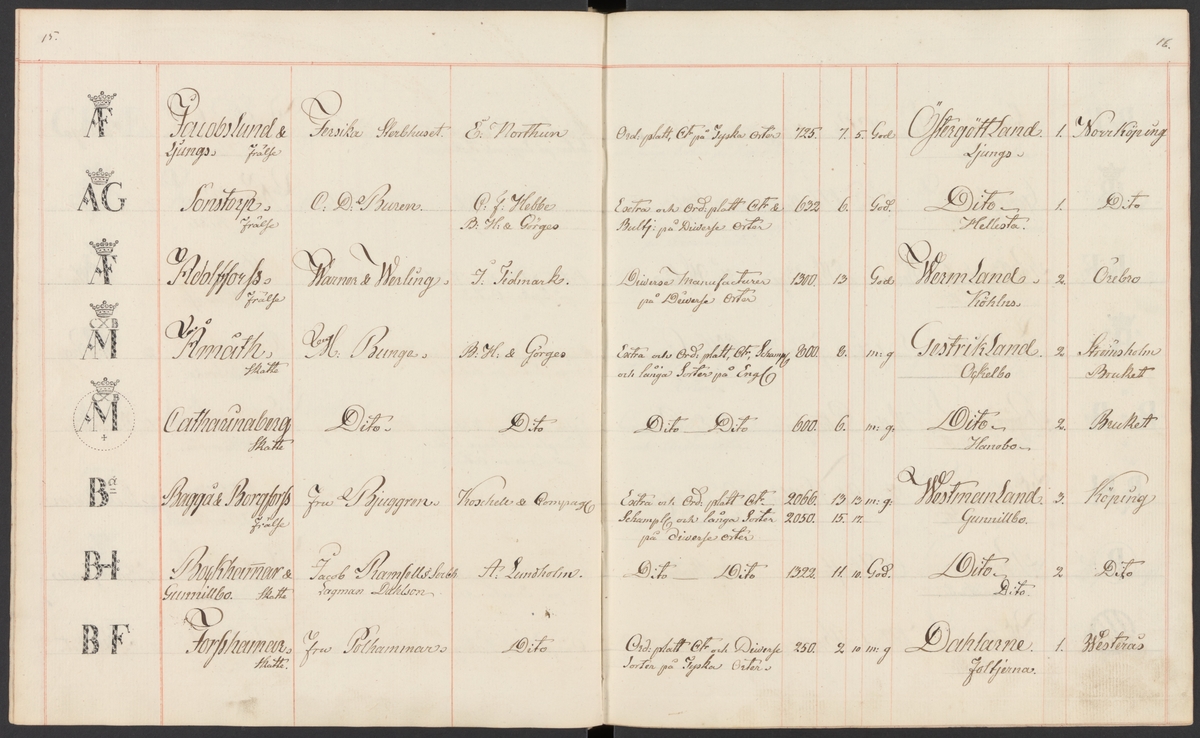 15.
16.
AF Jacobslund & Fersika Sterbhuset. E. Northun Ord. platt, Ctr på Tyska Orter 725. 7. 5. God Östergöttland 1. Norrköping
Ljungs. Frälse Ljungs.
AG Sonstorp. C. D. Buren. C. F. Hebbe Extra och Ord: platt Ctr & 632 6. God. Dito 1. Dito
Frälse B. H. & Görges på Diverse Orter Hellesta.
AF Adolfforss Warner & Werling. J. Tidmark. Diverse Manufacturer 1300. 13 God Wermland 2. Örebro
Frälse på Diverse Orter Köhlns.
CB
AM Åmåth. H. Bunge. B. H. & Görges Extra och Ord: platt, Ctr, Schampl 800. 8. m: g Gestrikland. 2 Strömsholm
Skatte och långa Sorter på Engl Ockelbo Brukett
CB
AM Catharinaberg Dito. Dito Dito Dito 600. 6. m: g. Dito 2. Brukett
Skatte Hanebo.
B Bagga & Borgforss fru Bjuggren. Koschell & Compagl Extra och Ord. platt Ctr 2066. 13 13 m: g. Westmanland. 3. Köping
Frälse Schampl och långa Sorter 2050. 15. 17. Gunnillbo.
på diverse orter
BH Boykhammar & Jacob Ramsells Sterbh A. Lundholm. Dito Dito 1322. 11. 10. God. Dito 2 Dito
Gunnillbo. Skatte Lagman Dahlson Dito.
BF Forsshamar. fru Polhammar. Dito Ord: platt Ctr och Diverse 250. 2 10 m: g Dahlarne. 1. Westerås
Skatte. Sorter på Tyska Orter. Folkjerna.